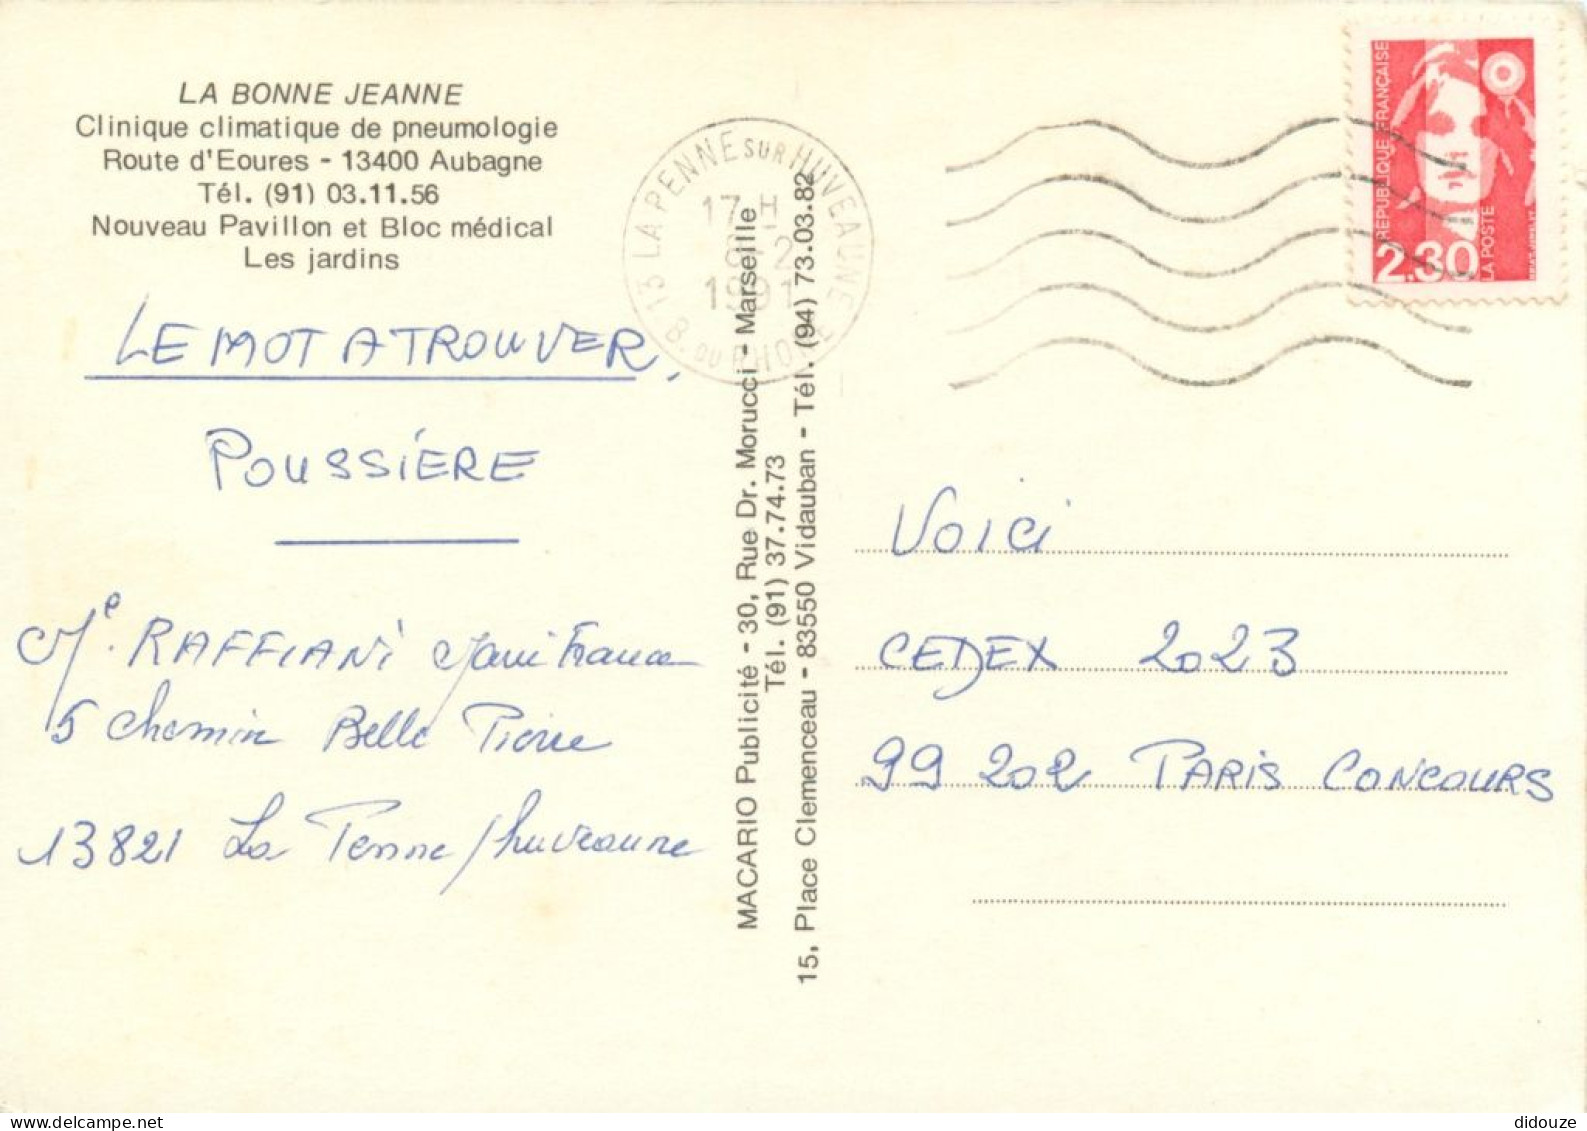 LA BONNE JEANNE
Clinique climatique de pneumologie
Route d'Eoures - 13400 Aubagne
Tél. (91) 03.11.56
Nouveau Pavillon et Bloc médical
Les jardins
LE MOT A TROUVER,
POUSSIÈRE
RAFFIANI
5 chemin Belle Pierre
13821 La Penne / huveaune
13 LA PENNE SUR HUVEAUNE
17 H
1991
B. DU RHONE
MACARIO Publicité - 30, Rue Dr. Morucci - Marseille
Tél. (91) 37.74.73
15, Place Clemenceau - 83550 Vidauban - Tél. (94) 73.03.82
REPUBLIQUE FRANÇAISE
2.30
LA POSTE
Voici
CEDEX 2023
99 202 PARIS CONCOURS
delcampe.net
didouze